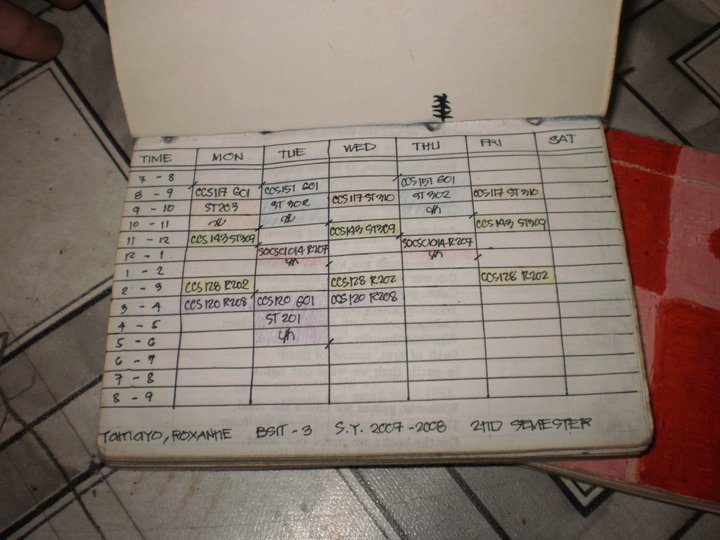 TIME MON TUE WED THU FRI SAT
7 - 8
8 - 9 CCS117 G01 CCS151 G01 CCS151 G01
9 - 10 ST203 ST 302 CCS117 ST310 ST 302 CCS117 ST310
10 - 11 CCS143 ST309
11 - 12 CCS143 ST309 CCS143 ST309
12 - 1 SOCSCI014 R207 SOCSCI014 R207
1 - 2
2 - 3 CCS128 R202 CCS128 R202 CCS128 R202
3 - 4 CCS120 R208 CCS120 G01 CCS120 R208
4 - 5 ST 201
5 - 6
6 - 7
7 - 8
8 - 9
TAMAYO, ROXANNE BSIT - 3 S.Y. 2007 - 2008 2ND SEMESTER